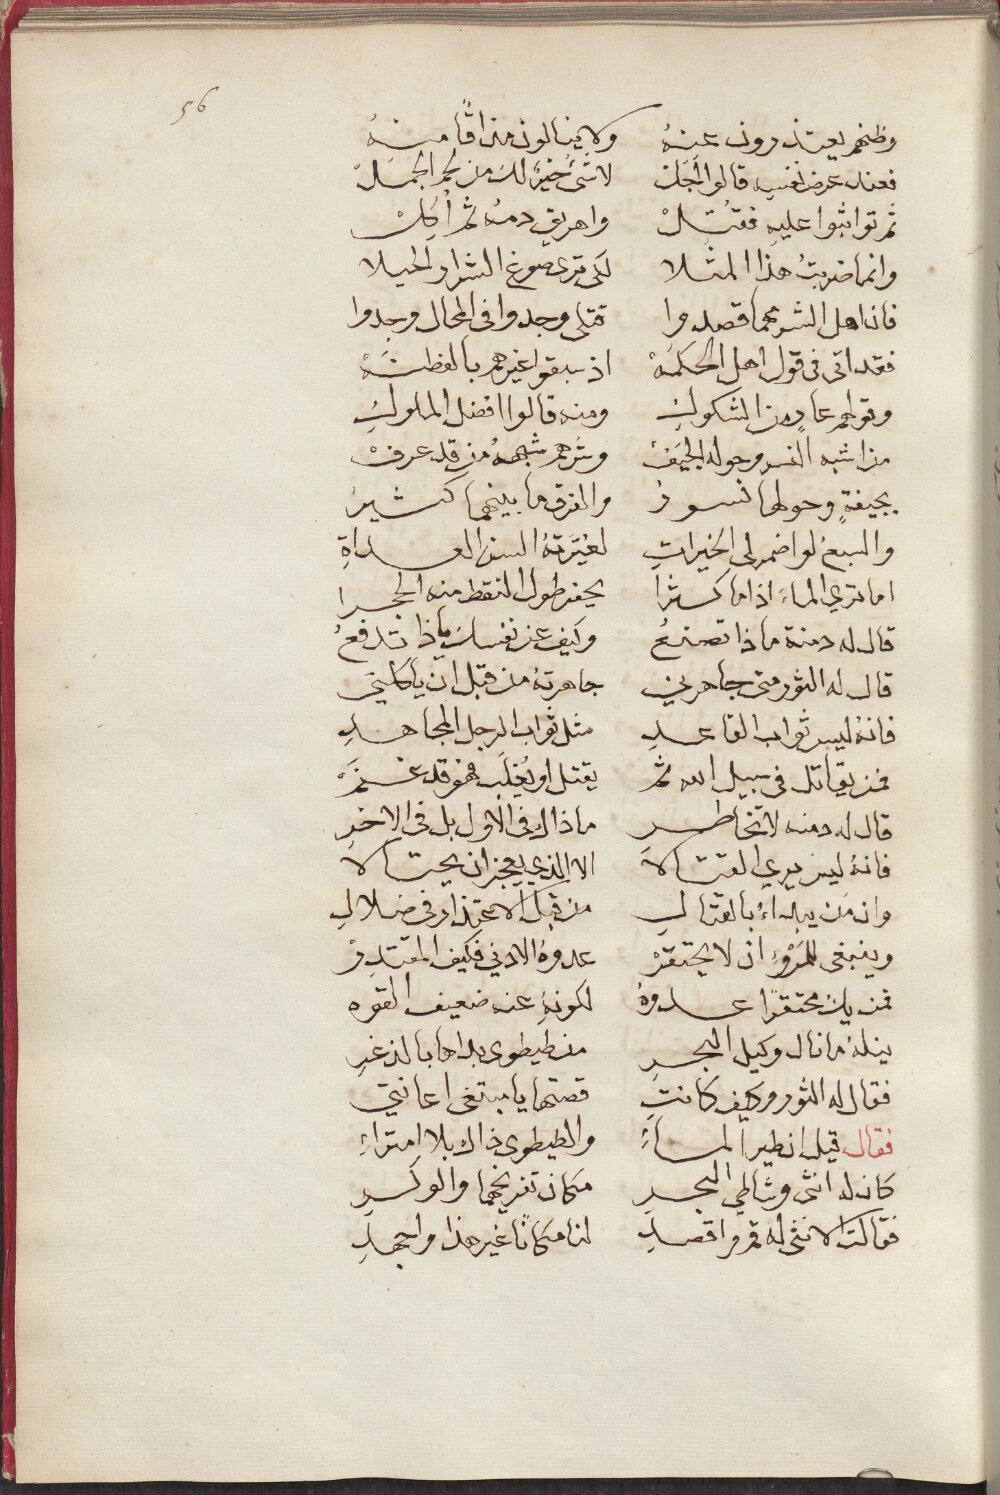 56
وظنهم يعتذرون عنهُ ولا ينالون مذاقًا منهُ
فعند عرض نفسه قالوا اجَلْ لاشئَ خيرٌ لك من لحم الجملْ
ثم تواثبوا عليهِ فقُتِلْ واهريق دمه ثم اُكِلْ
وانما ضربتُ هذا المثلا لكى ترى صوغ الشرار الحيلا
فان اهل الشر مهما قصدوا قتلى وجدوا فى المحال وجدوا
فقد اتى فى قول اهل الحكمَهْ اذ سبقوا غيرهم بالفطنَهْ
وقولهم عارٍ من الشكوكِ ومنه قالوا افضل الملوكِ
من اشبه النسر وحوله الجيَفْ وشرهم شبههُ من قد عرفْ
بجيفةٍ وحولها نسورُ والفرق ما بينهما كثيرُ
والسبعُ لو اضمر لى الخيراتِ لغيَّرتهُ السن العداةِ
اما ترى الماءَ اذا ما كثرا يحفر طول النقط منه الحجرا
قال له دمنة ماذا تصنعُ وكيف عن نفسك ماذا تدفعُ
قال له الثور متى جاهرنى جاهرتهُ من قبل ان ياكلنى
فانهُ ليس ثواب القاعدِ مثل ثواب الرجل المجاهدِ
فمن يقاتل فى سبيل الله ثم يقتل او يُغلَب فهو قد غنمَ
قال له دمنه لا تخاطرِ ماذاك فى الاول بل فى الاخرِ
فانهُ ليس يرى القتالا الا الذى يعجز ان يحتالا
وان من يبداءُ بالقتالِ من قبل الاعتذار فى ضلالِ
وينبغى للمرْءِ ان لا يحتقرْ عدوهُ الادنى فكيف المقتدرْ
فمن يك محتقرًا عدوهُ لكونهِ عنه ضعيف القوه
ينلهُ ما نال وكيل البحرِ من طيطوى بداها بالذعرِ
فقال له الثور وكيف كانتِ قصتها يا مبتغى اعانتى
فقال قيل ان طير الماءِ والطيطوى ذاك بلا امتراءِ
كان له انثى وشاطى البحرِ مكان تفريخهما والوكرِ
فقالت الانثى له قم واقصدِ لنا مكانًا غير هذا واجهدِ